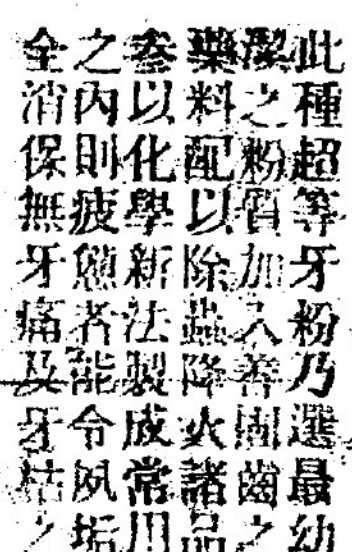 此種超等牙粉乃選最幼
潔之粉質加入善固齒之
藥料配以除蟲降火諸品
叅以化學新法製成常用
之內則疲憊者能令夙垢
全消保無牙痛及牙枯之